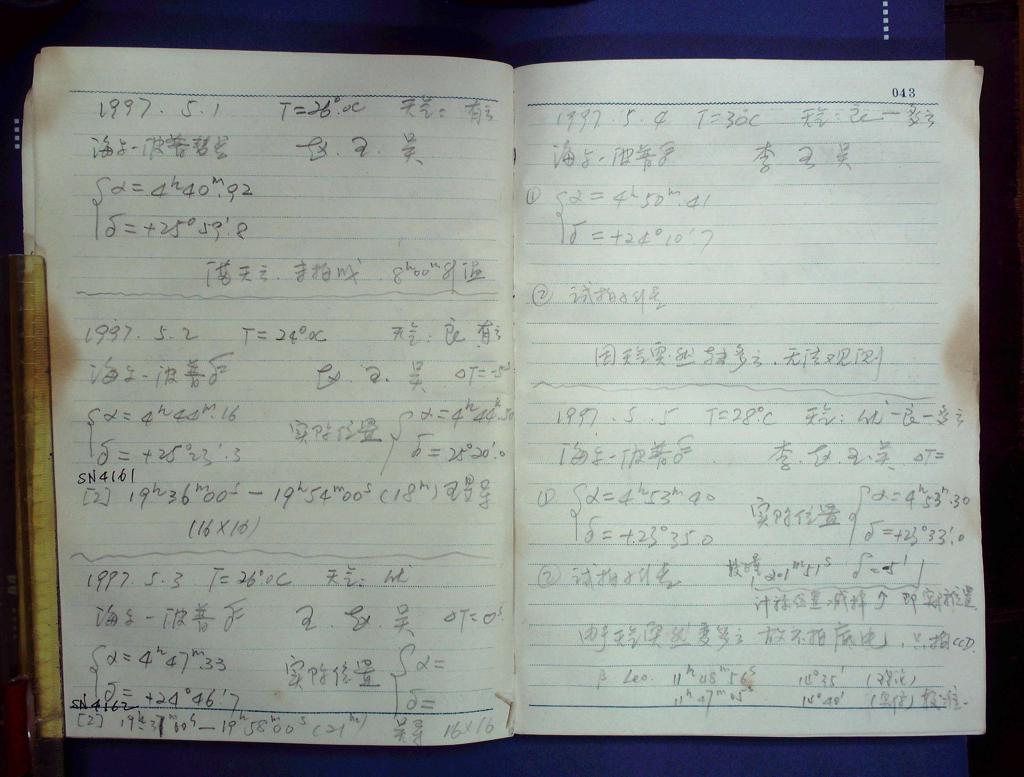 1997. 5. 1 T=26°.0C 天气: 有云
海尔-波普彗星 赵. 王. 吴
α=4ʰ40ᵐ.92
δ=+25°59′.8
满天云. 未拍成 8ʰ00ᵐ
1997. 5. 2 T=24°.0C 天气: 良 有云
海尔-波普 赵 王. 吴 ΔT=-5ˢ
α=4ʰ44ᵐ.16 实际位置 α=4ʰ44ᵐ.50
δ=+25°23′.3 δ=25°20′.0
SN4161
[2] 19ʰ36ᵐ00ˢ-19ʰ54ᵐ00ˢ (18ᵐ) 王导
(16×16)
1997. 5. 3 T=26°.0C 天气: 优
海尔-波普 王 赵 吴 ΔT=0ˢ
α=4ʰ47ᵐ.33 实际位置 α=
δ=+24°46′.7 δ=
SN4162
[2] 19ʰ37ᵐ00ˢ-19ʰ58ᵐ00ˢ (21ᵐ) 吴导 16×16
043
1997. 5. 4 T=30°C 天气: 良-多云
海尔-波普 李 王 吴
① α=4ʰ50ᵐ.41
δ=+24°10′.7
② 试拍
因天气突然转多云. 无法观测
1997. 5. 5 T=28°C 天气: 优-良-多云
海尔-波普 李. 赵. 王. 吴 ΔT=
① α=4ʰ53ᵐ.40 实际位置 α=4ʰ53ᵐ.30
δ=+23°35.0 δ=+23°33′.0
② 试拍 2ᵐ51ˢ δ=-5′
计算位置 减掉 即实际位置
由于天气突然变多云 故不拍底片, 只拍CCD.
β Leo. 11ʰ48ᵐ56ˢ 14°35′ (理论)
11ʰ47ᵐ05ˢ 14°40′ (实际) 校准.